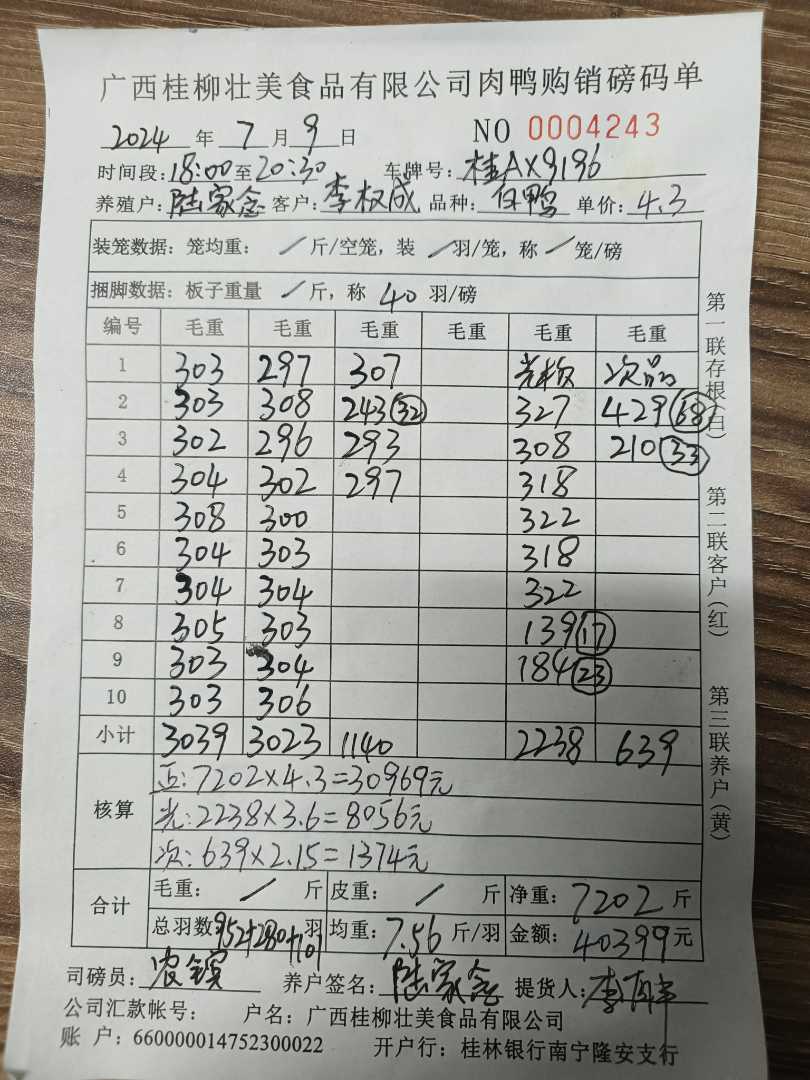 广西桂柳壮美食品有限公司肉鸭购销磅码单
2024 年 7 月 9 日 NO 0004243
时间段: 18:00 至 20:30 车牌号: 桂AX9196
养殖户: 陆家念 客户: 李权成 品种: 白鸭 单价: 4.3
装笼数据: 笼均重: / 斤/空笼, 装 / 羽/笼, 称 / 笼/磅
捆脚数据: 板子重量 / 斤, 称 40 羽/磅
编号 毛重 毛重 毛重 毛重 毛重 毛重
1 303 297 307 次品
2 303 308 243 32 327 429 68
3 302 296 293 308 210 33
4 304 302 297 318
5 308 300 322
6 304 303 318
7 304 304 322
8 305 303 139 17
9 303 304 184 23
10 303 306
小计 3039 3023 1140 2238 639
核算
正: 7202×4.3=30969元
光: 2238×3.6=8056元
次: 639×2.15=1374元
合计
毛重: / 斤 皮重: / 斤 净重: 7202 斤
总羽数 952+280+101 羽 均重: 7.56 斤/羽 金额: 40399 元
司磅员: 农 养户签名: 陆家念 提货人: 李
公司汇款帐号: 户名: 广西桂柳壮美食品有限公司
账 户: 660000014752300022 开户行: 桂林银行南宁隆安支行
第一联存根(白) 第二联客户(红) 第三联养户(黄)